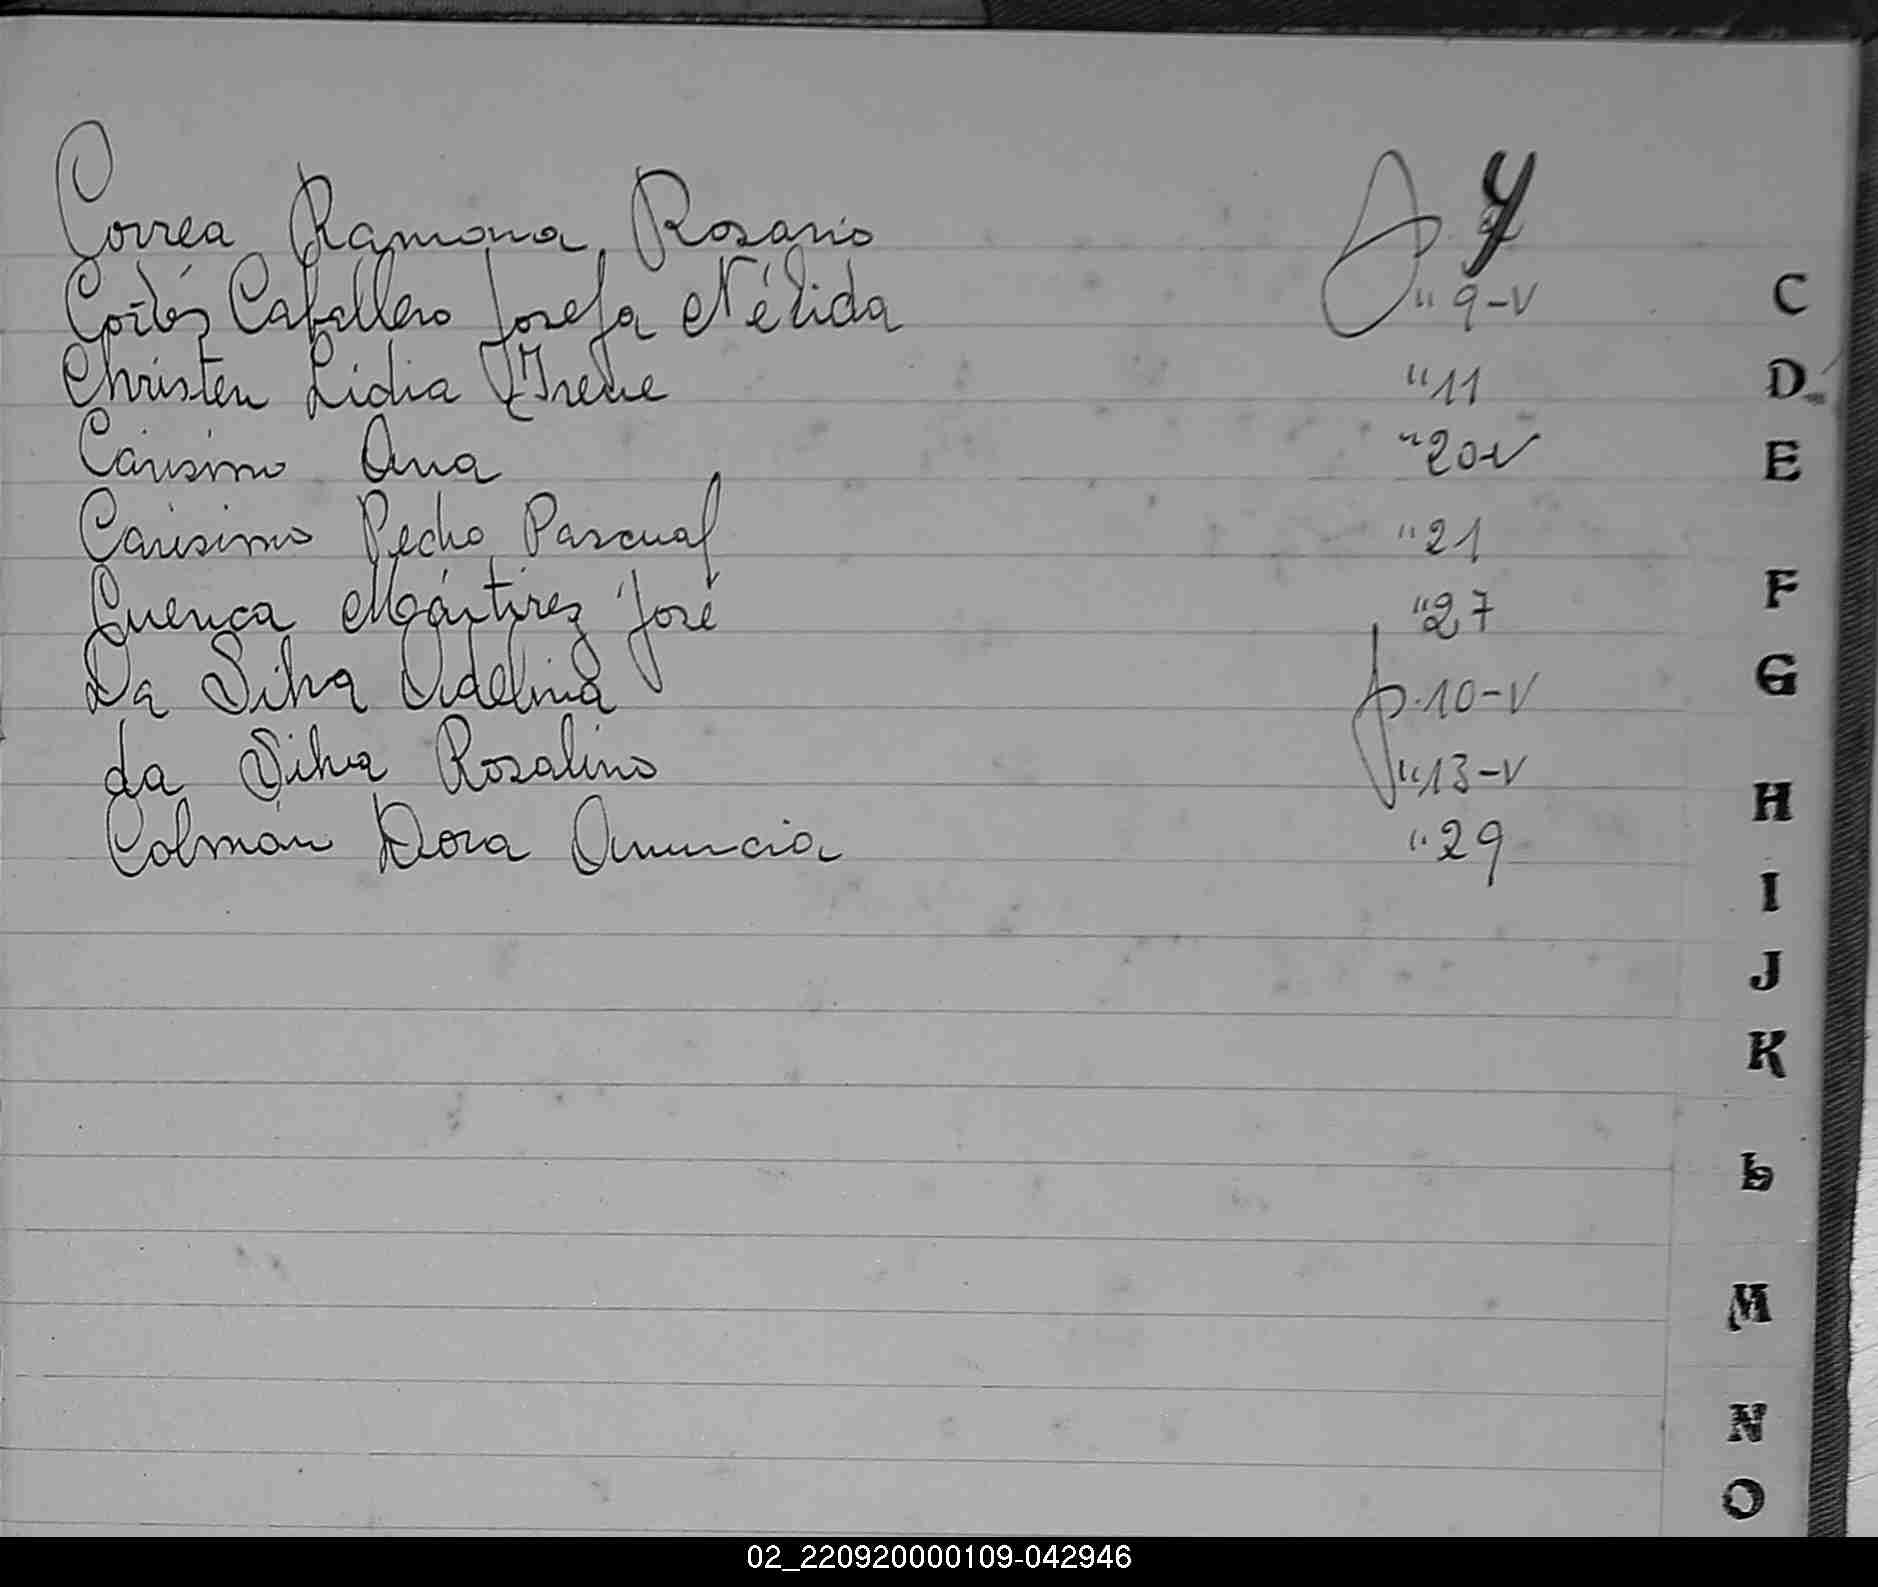 Correa Ramona Rosario f. 4
Cortés Caballero Josefa Nélida " 9-v
Christen Lidia Irene " 11
Carisimo Ana " 20v
Carisimo Pedro Pascual " 21
Cuenca Mártirez José " 27
Da Silva Adelina f. 10-v
da Silva Rosalino " 13-v
Colmán Dora Anuncia " 29
C
D
E
F
G
H
I
J
K
L
M
N
O
02_220920000109-042946